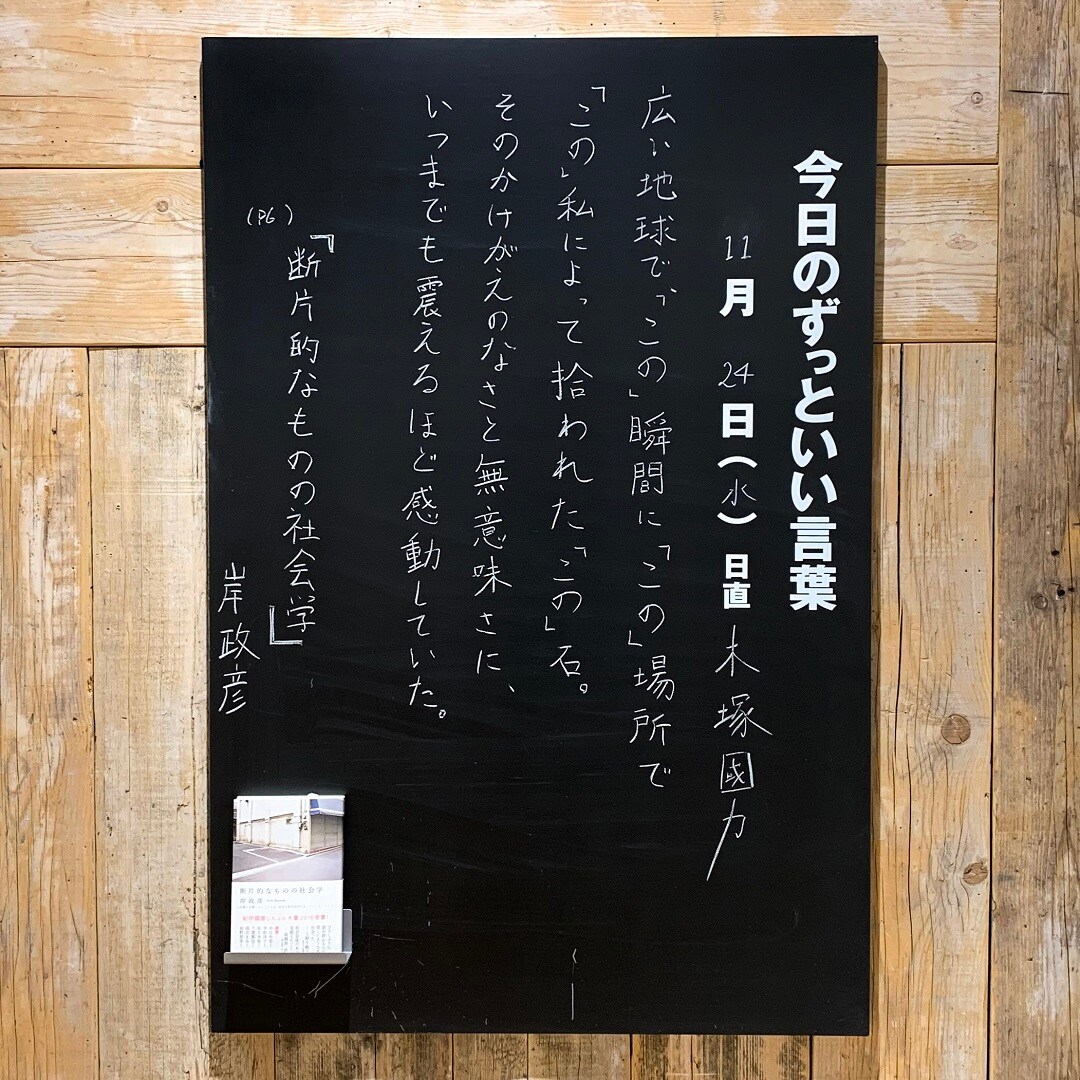 今日のずっといい言葉
11月 24日(水) 日直 木塚國力
広い地球で「この」瞬間に「この」場所で
「この」私によって拾われた「この」石。
そのかけがえのなさと無意味さに、
いつまでも震えるほど感動していた。
(P6)
『断片的なものの社会学』
岸政彦
断片的なものの社会学
岸政彦
紀伊國屋じんぶん大賞2016受賞!